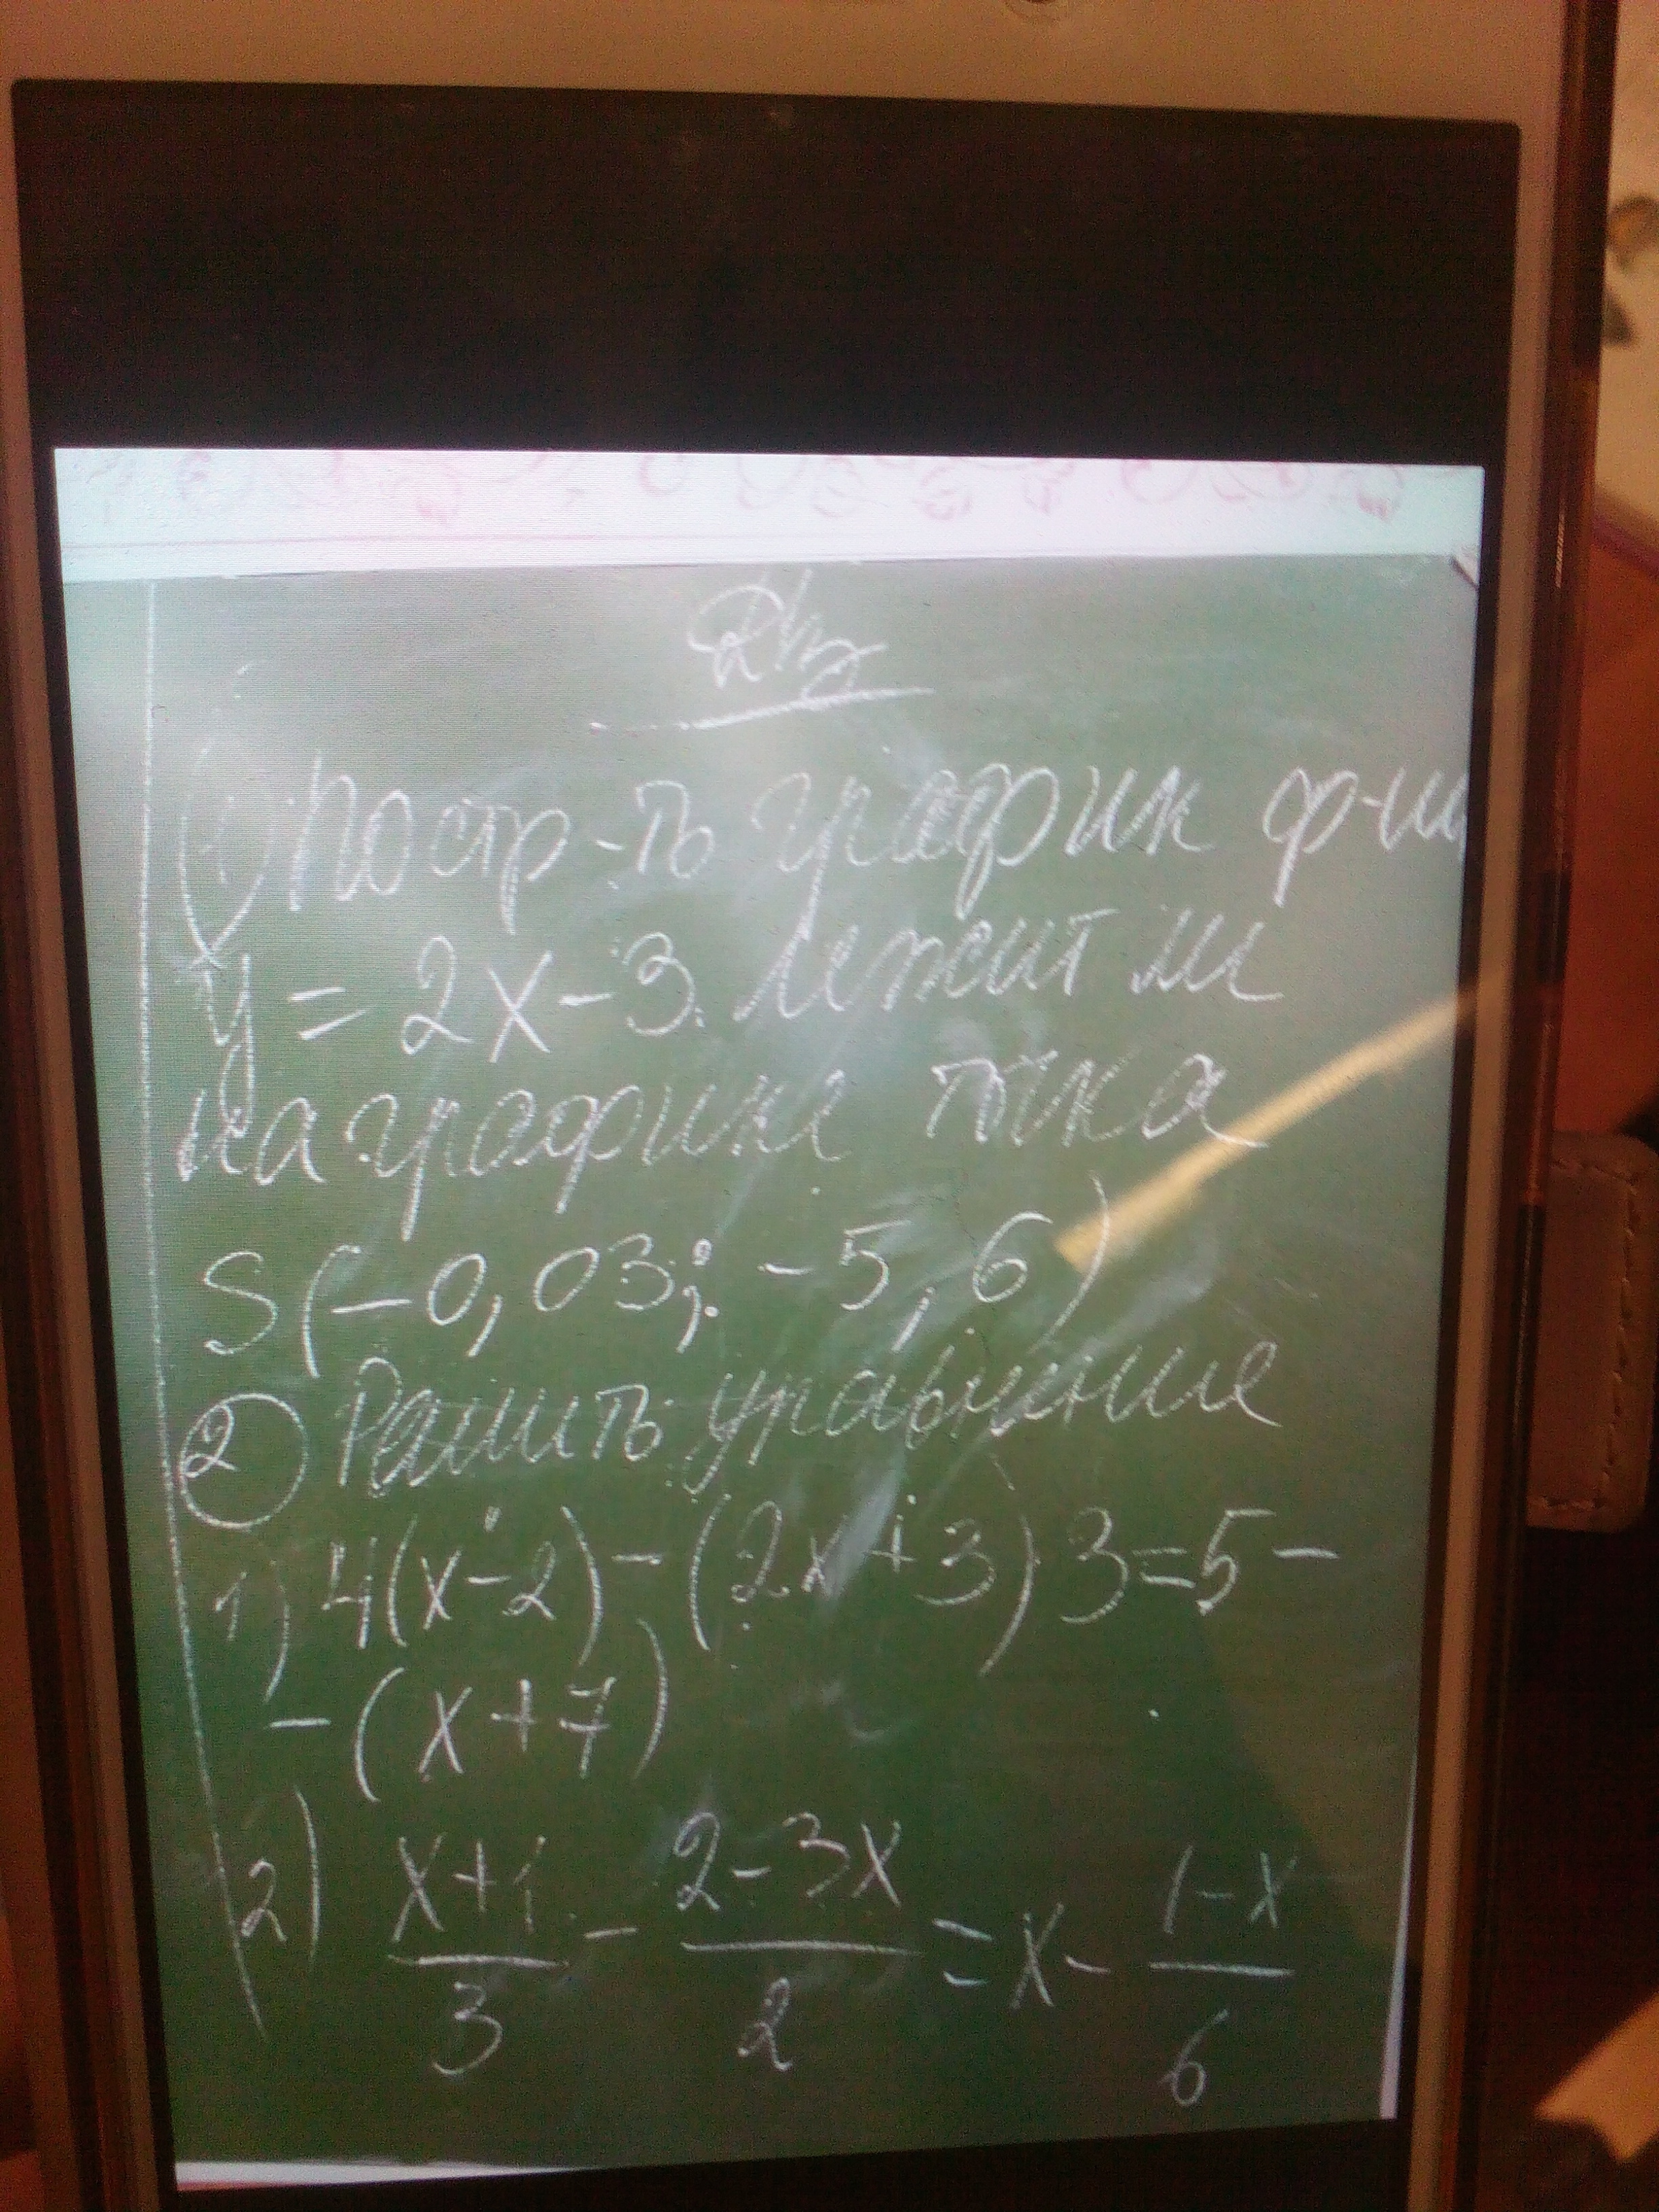 Д/з
① Постр-ть график ф-ии
y = 2x - 3. Лежит ли
на графике т-ка
S(-0,03; -5,6)
② Решить уравнение
1) 4(x-2) - (2x+3)3=5-
-(x+7)
2) x+1/3 - 2-3x/2 = x - 1-x/6